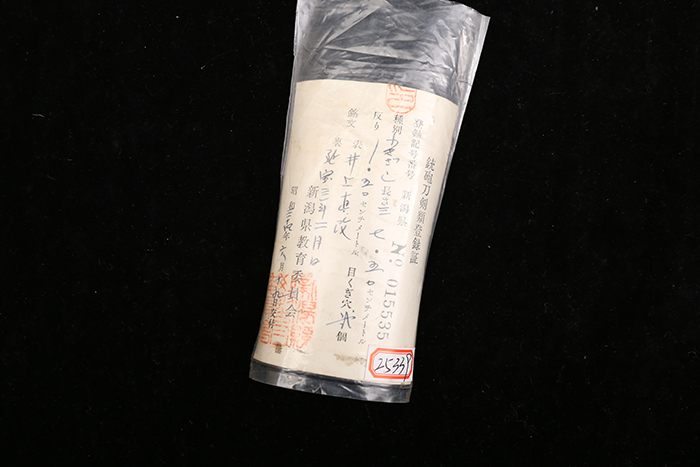 銃砲刀剣類登録証
登録記号番号 新潟県 No 015535
種別 わきざし 長さ 三七・五〇センチメートル
反り 一・五〇センチメートル 目くぎ穴 弐個
銘文 表 井上真改
裏 延宝三年二月日
新潟県教育委員会
昭和三 年六月 日交付
25339